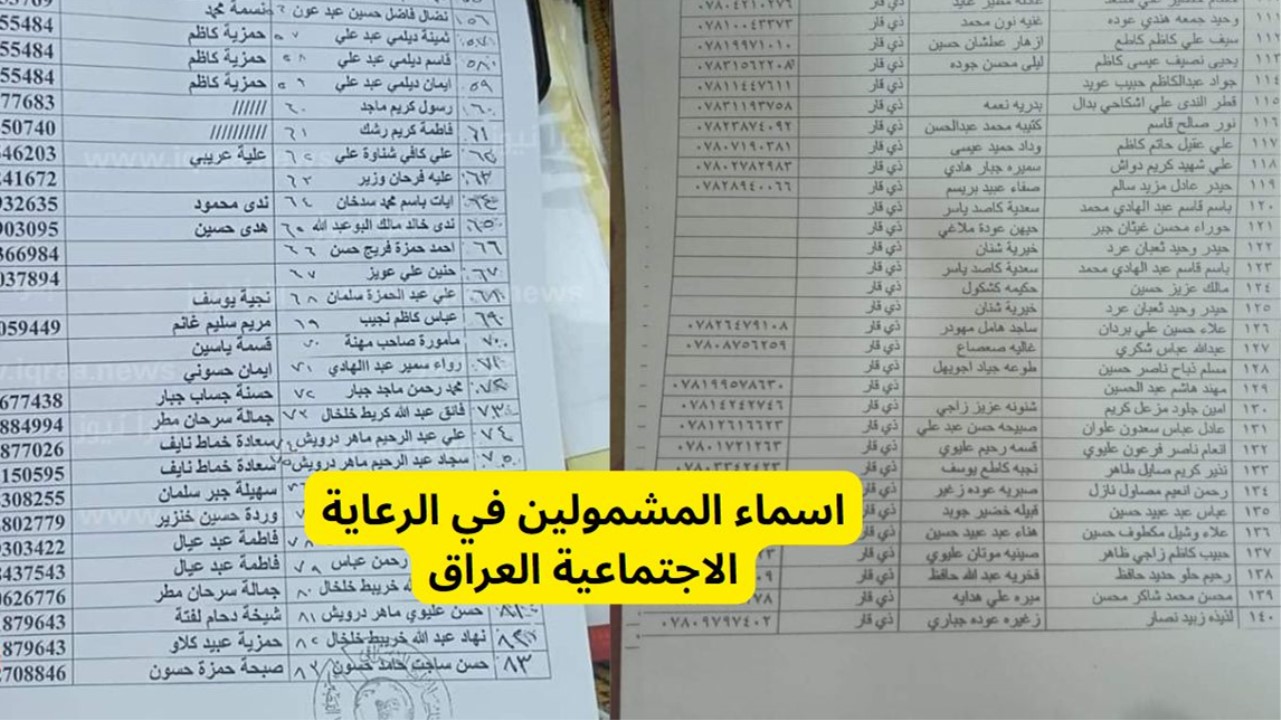 ٠٧٨٠٤٢١٠٢٧٦ ذي قار
وحيد جمعه هندي عوده غنيه نون محمد ذي قار ٠٧٨١٠٠٤٣٣٧٣
سيف علي كاظم كاطع ازهار عطشان حسين ذي قار ٠٧٨١٩٩٧١٠١٠
يحيى نصيف عيسى كاظم ليلى محسن جوده ذي قار
١١٤ جواد عبدالكاظم حبيب عويد ذي قار ٠٧٨١١٤٤٧٦١١
١١٥ قطر الندى علي اشكاحي بدال بدريه نعمه ذي قار ٠٧٨٣١١٩٣٧٥٨
١١٦ نور صالح قاسم كتيبه محمد عبدالحسن ذي قار ٠٧٨٢٣٨٧٤٠٩٢
١١٧ علي عقيل حاتم كاظم وداد حميد عيسى ذي قار ٠٧٨٠٧١٩٠٣٨١
١١٨ علي شهيد كريم دواش سميره جبار هادي ذي قار ٠٧٨٠٢٧٨٢٩٨٣
١١٩ حيدر عادل مزيد سالم صفاء عبيد بريسم ذي قار ٠٧٨٢٨٩٤٠٠٦٦
١٢٠ باسم قاسم عبد الهادي محمد سعدية كاصد ياسر ذي قار
١٢١ حوراء محسن غيثان جبر جيهن عودة ملاغي ذي قار
١٢٢ حيدر وحيد ثعبان عرد خيرية شنان ذي قار
١٢٣ باسم قاسم عبد الهادي محمد سعدية كاصد ياسر ذي قار
١٢٤ مالك عزيز حسين حكيمه كشكول ذي قار
١٢٥ حيدر وحيد ثعبان عرد خيرية شنان ذي قار
١٢٦ علاء حسين علي بردان ساجد هامل مهودر ذي قار ٠٧٨٢٦٤٧٩١٠٨
١٢٧ عبدالله عباس شكري غاليه صعصاع ذي قار ٠٧٨٠٨٧٥٦٢٥٩
١٢٨ مسلم نباح ناصر حسين طوعه جياد اجويهل ذي قار
١٢٩ مهند هاشم عبد الحسين ذي قار ٠٧٨١٩٩٥٧٨٦٣٠
١٣٠ امين جلود مزعل كريم شنونه عزيز زاجي ذي قار ٠٧٨١٤٢٤٢٧٤٦
١٣١ عادل عباس سعدون علوان صبيحه حسن عبد علي ذي قار ٠٧٨١٢٦١٦٦٢٣
١٣٢ انعام ناصر فرعون عليوي قسمه رحيم عليوي ذي قار ٠٧٨٠١٧٣١٢٦٣
١٣٣ نذير كريم صايل طاهر نجبه كاطع يوسف ذي قار ٠٧٨٠٣٣٤٢٤٢٣
١٣٤ رحمن انعيم مصاول نازل صبريه عوده زغير
١٣٥ عباس عبد عبيد حسين قبيله خضير جويد
١٣٦ علاء وشيل مكطوف حسين هناء عبد عبيد حسين
١٣٧ حبيب كاظم زاجي ظاهر صينيه موتان عليوي
١٣٨ رحيم حلو حديد حافظ فخريه عبد الله حافظ ذي قار
١٣٩ محسن محمد شاكر محسن ميره علي هدايه ذي قار
١٤٠ لذيذه زبيد نصار زغيره عوده جباري ذي قار ٠٧٨٠٩٧٩٧٤٠٢
٥٦ نضال فاضل حسين عبد عون نسمة محمد
٥٧ ثمينة ديلمي عبد علي حمزية كاظم 55484
٥٨ قاسم ديلمي عبد علي حمزية كاظم 55484
٥٩ ايمان ديلمي عبد علي حمزية كاظم 55484
٦٠ رسول كريم ماجد ////// 77683
٦١ فاطمة كريم رشك ////////// 50740
علي كافي شناوة علي علية عريبي 546203
٦٣ عليه فرحان وزير 241672
٦٤ ايات باسم محمد سدخان ندى محمود 932635
٦٥ ندى خالد مالك البوعبد الله هدى حسين 903095
٦٦ احمد حمزة فريح حسن 366984
٦٧ حنين علي عويز 037894
٦٨ علي عبد الحمزة سلمان نجية يوسف
٦٩ عباس كاظم نجيب مريم سليم غانم 059449
٧٠ مأمورة صاحب مهنة قسمة ياسين
٧١ رواء سمير عبد الهادي ايمان حسوني
محمد رحمن ماجد جبار حسنة جساب جبار 677438
٧٣ فائق عبد الله كريط خلخال جمالة سرحان مطر 884994
٧٤ علي عبد الرحيم ماهر درويش سعادة خماط نايف 877026
٧٥ سجاد عبد الرحيم ماهر درويش سعادة خماط نايف 150595
سهيلة جبر سلمان 308255
وردة حسين خنزير 802779
فاطمة عبد عيال 9303422
رحمن عباس فاطمة عبد عيال 8437543
خريبط خلخال ٨٠ جمالة سرحان مطر 0626776
٨١ حسن عليوي ماهر درويش شيخة دحام لفتة 879643
نهاد عبد الله خريبط خلخال حمزية عبيد كلاو 1879643
٨٣ حسن ساجت حامد حسون صبحة حمزة حسون 2708846
اسماء المشمولين في الرعاية
الاجتماعية العراق